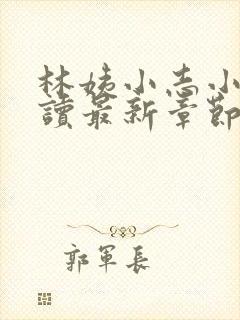 林姨小志小
讀最新章節
郭軍長